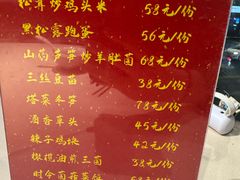 松茸炒鸡头米 58元/份
黑松露跑蛋 56元/份
山药芦笋炒羊肚菌 68元/份
三丝豆苗 38元/份
塔菜冬笋 78元/份
酒香草头 45元/份
辣子鸡块 42元/份
橄榄油煎三菌 38元/份
时令菌菇菜